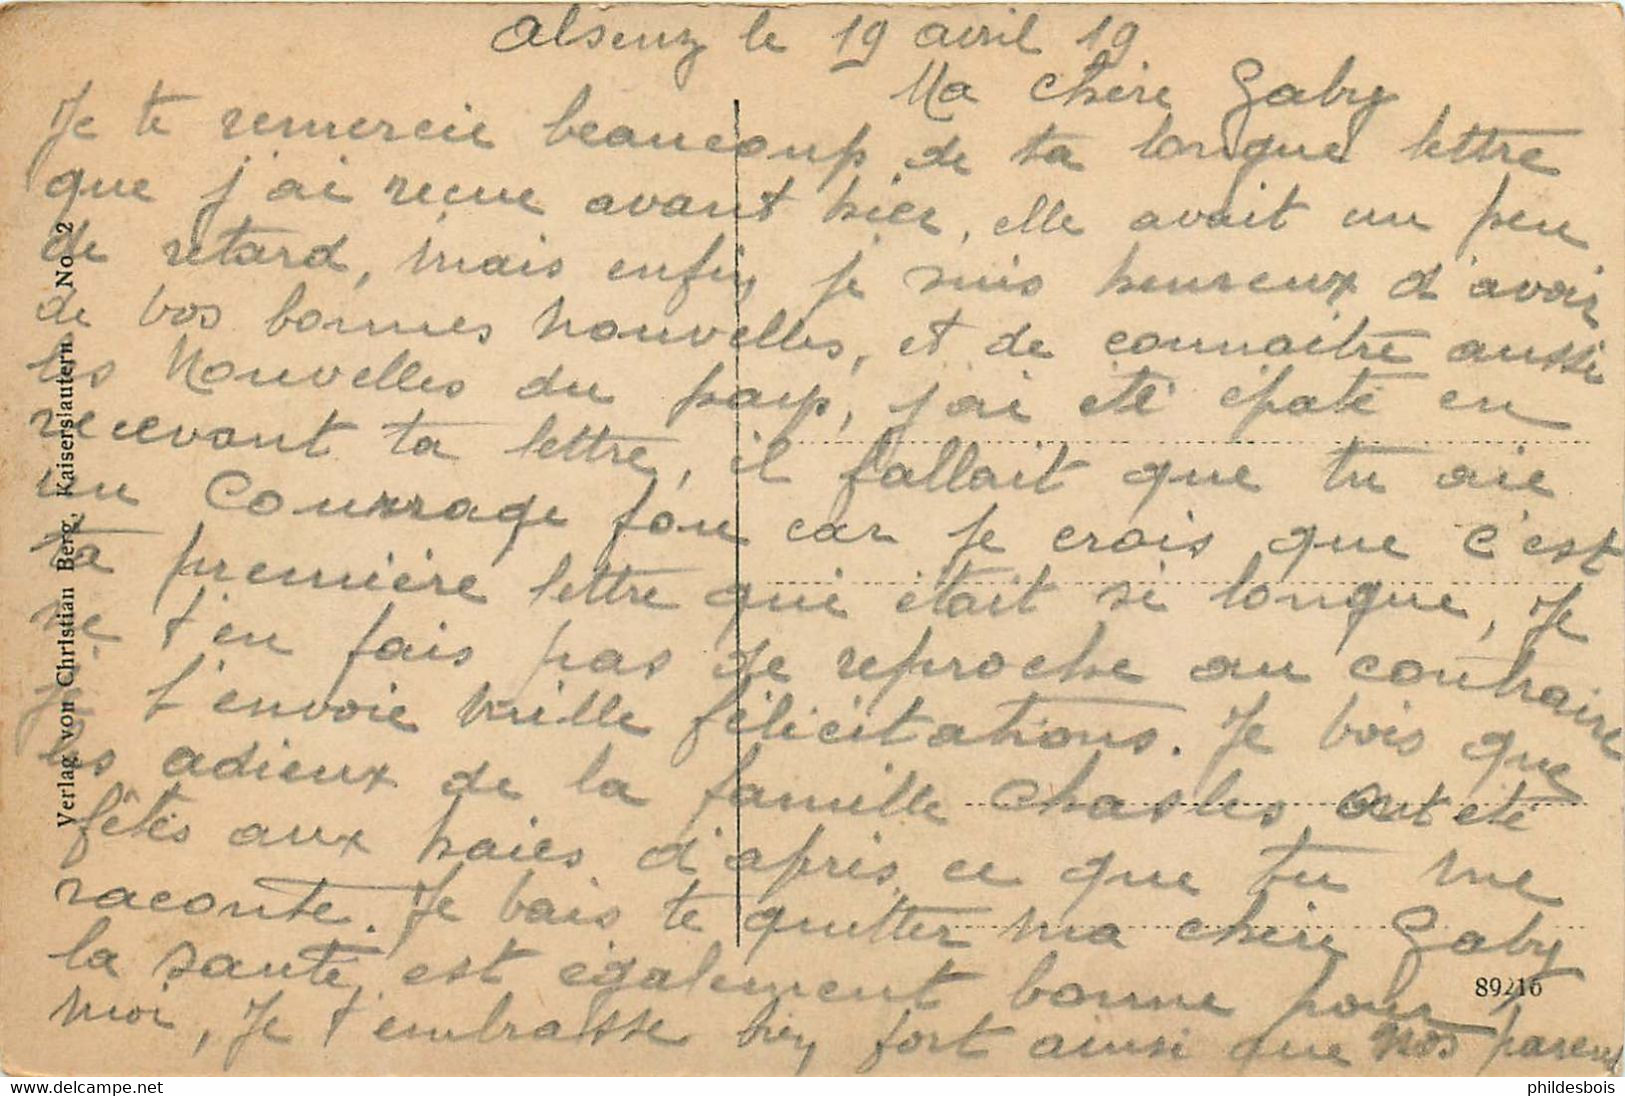 Alsenz le 19 avril 19
Ma chère Gaby
Je te remercie beaucoup de ta longue lettre
que j'ai reçue avant hier, elle avait un peu
de retard, mais enfin je suis heureux d'avoir
de vos bonnes nouvelles, et de connaitre aussi
les Nouvelles du pays, j'ai été épaté en
recevant ta lettre, il fallait que tu aie
un Courrage fou car je crois que c'est
ta première lettre qui était si longue, Je
ne t'en fais pas de reproche au contraire
je t'envoie mille félicitations. Je vois que
les adieux de la famille Chasles ont été
fêtés aux haies d'après ce que tu me
raconte. Je vais te quitter ma chère Gaby
la santé est également bonne pour
moi, Je t'embrasse bien fort ainsi que nos parents
Verlag von Christian Berg, Kaiserslautern No. 2
89216
phildesbois